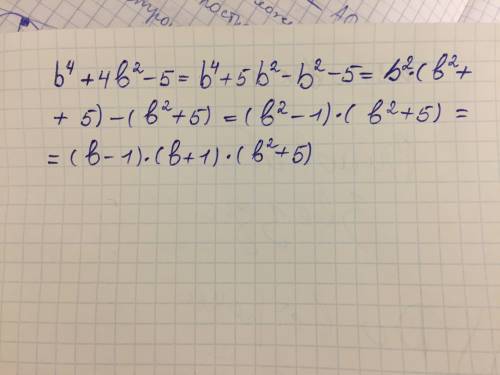 b⁴ + 4b² - 5 = b⁴ + 5b² - b² - 5 = b²·(b² +
+ 5) - (b² + 5) = (b² - 1)·(b² + 5) =
= (b - 1)·(b + 1)·(b² + 5)